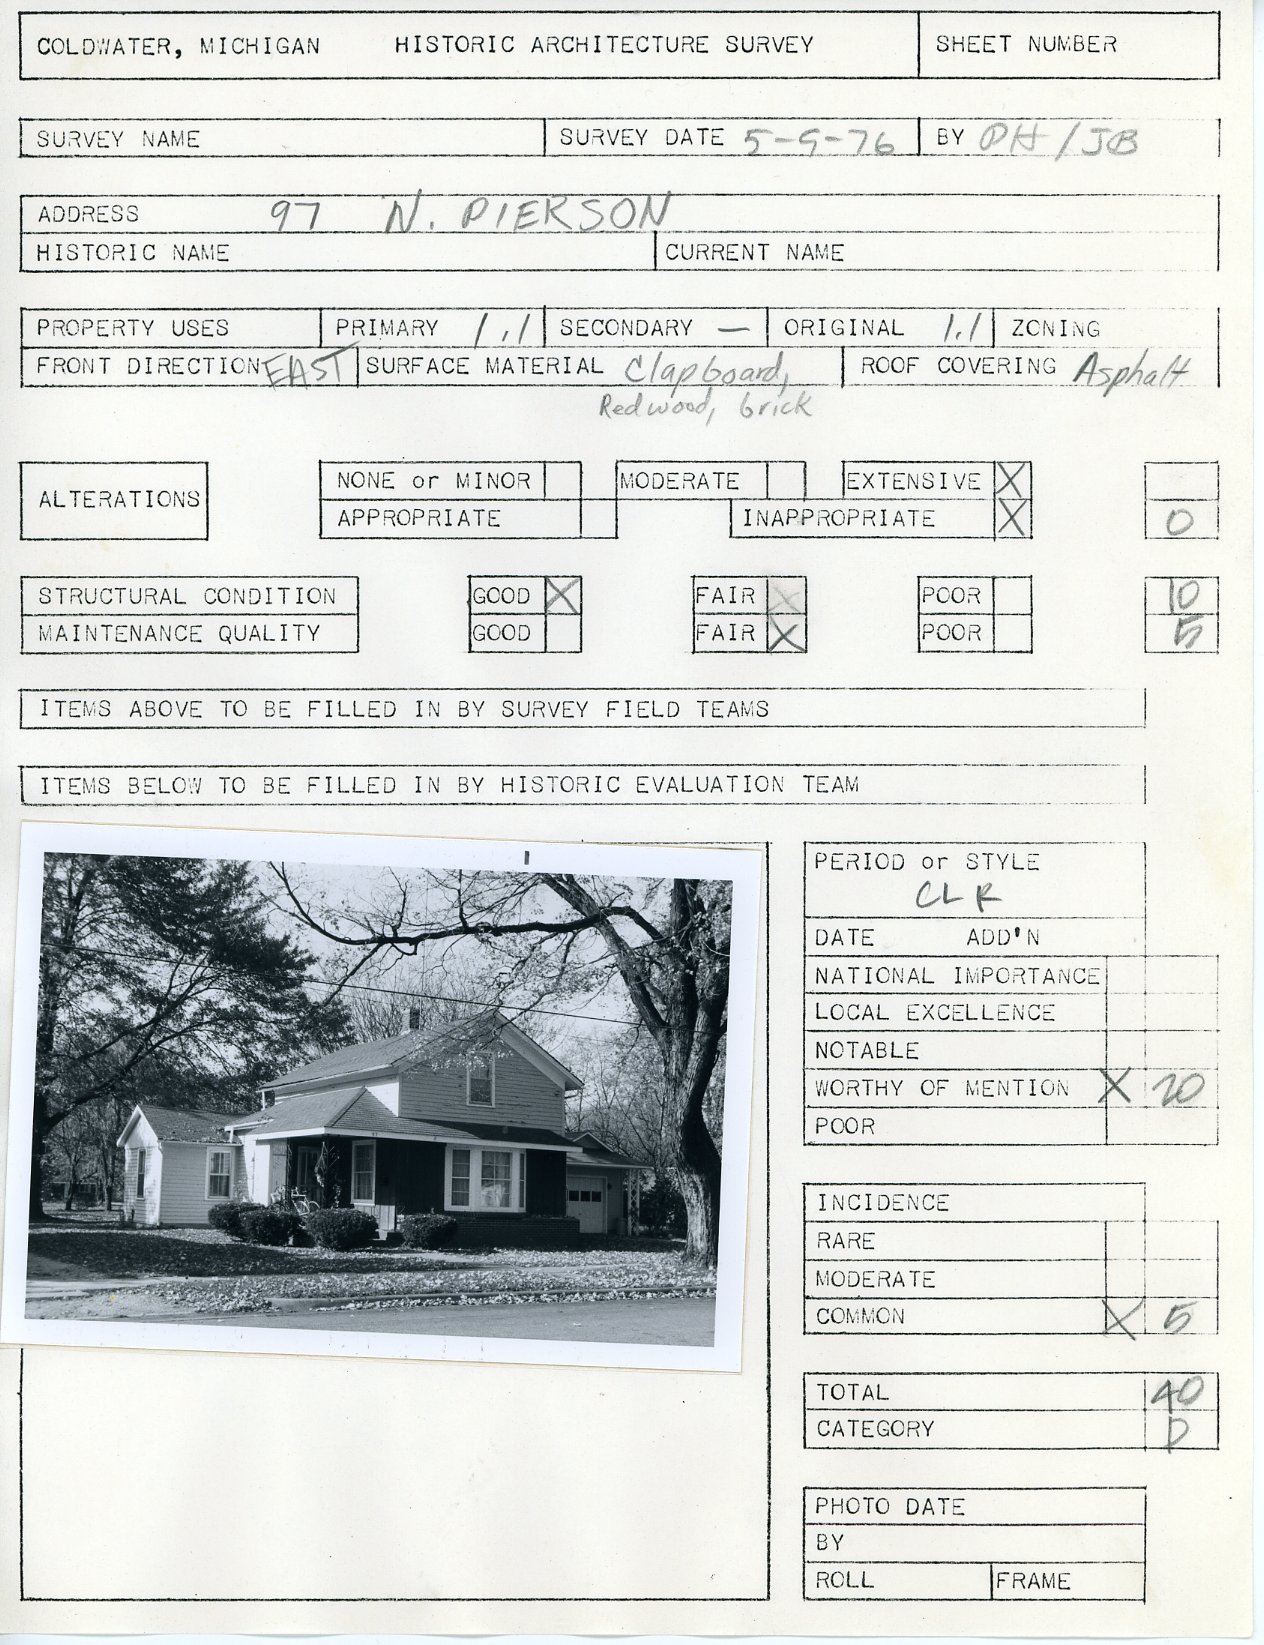 COLDWATER, MICHIGAN HISTORIC ARCHITECTURE SURVEY SHEET NUMBER
SURVEY NAME SURVEY DATE 5-9-76 BY PH/JB
ADDRESS 97 N. PIERSON
HISTORIC NAME CURRENT NAME
PROPERTY USES PRIMARY 1.1 SECONDARY — ORIGINAL 1.1 ZONING
FRONT DIRECTION EAST SURFACE MATERIAL Clapboard, ROOF COVERING Asphalt
Redwood, brick
ALTERATIONS NONE or MINOR MODERATE EXTENSIVE X
APPROPRIATE INAPPROPRIATE X 0
STRUCTURAL CONDITION GOOD X FAIR POOR 10
MAINTENANCE QUALITY GOOD FAIR X POOR 5
ITEMS ABOVE TO BE FILLED IN BY SURVEY FIELD TEAMS
ITEMS BELOW TO BE FILLED IN BY HISTORIC EVALUATION TEAM
PERIOD or STYLE
CLR
DATE ADD'N
NATIONAL IMPORTANCE
LOCAL EXCELLENCE
NOTABLE
WORTHY OF MENTION X 20
POOR
INCIDENCE
RARE
MODERATE
COMMON X 5
TOTAL 40
CATEGORY D
PHOTO DATE
BY
ROLL FRAME